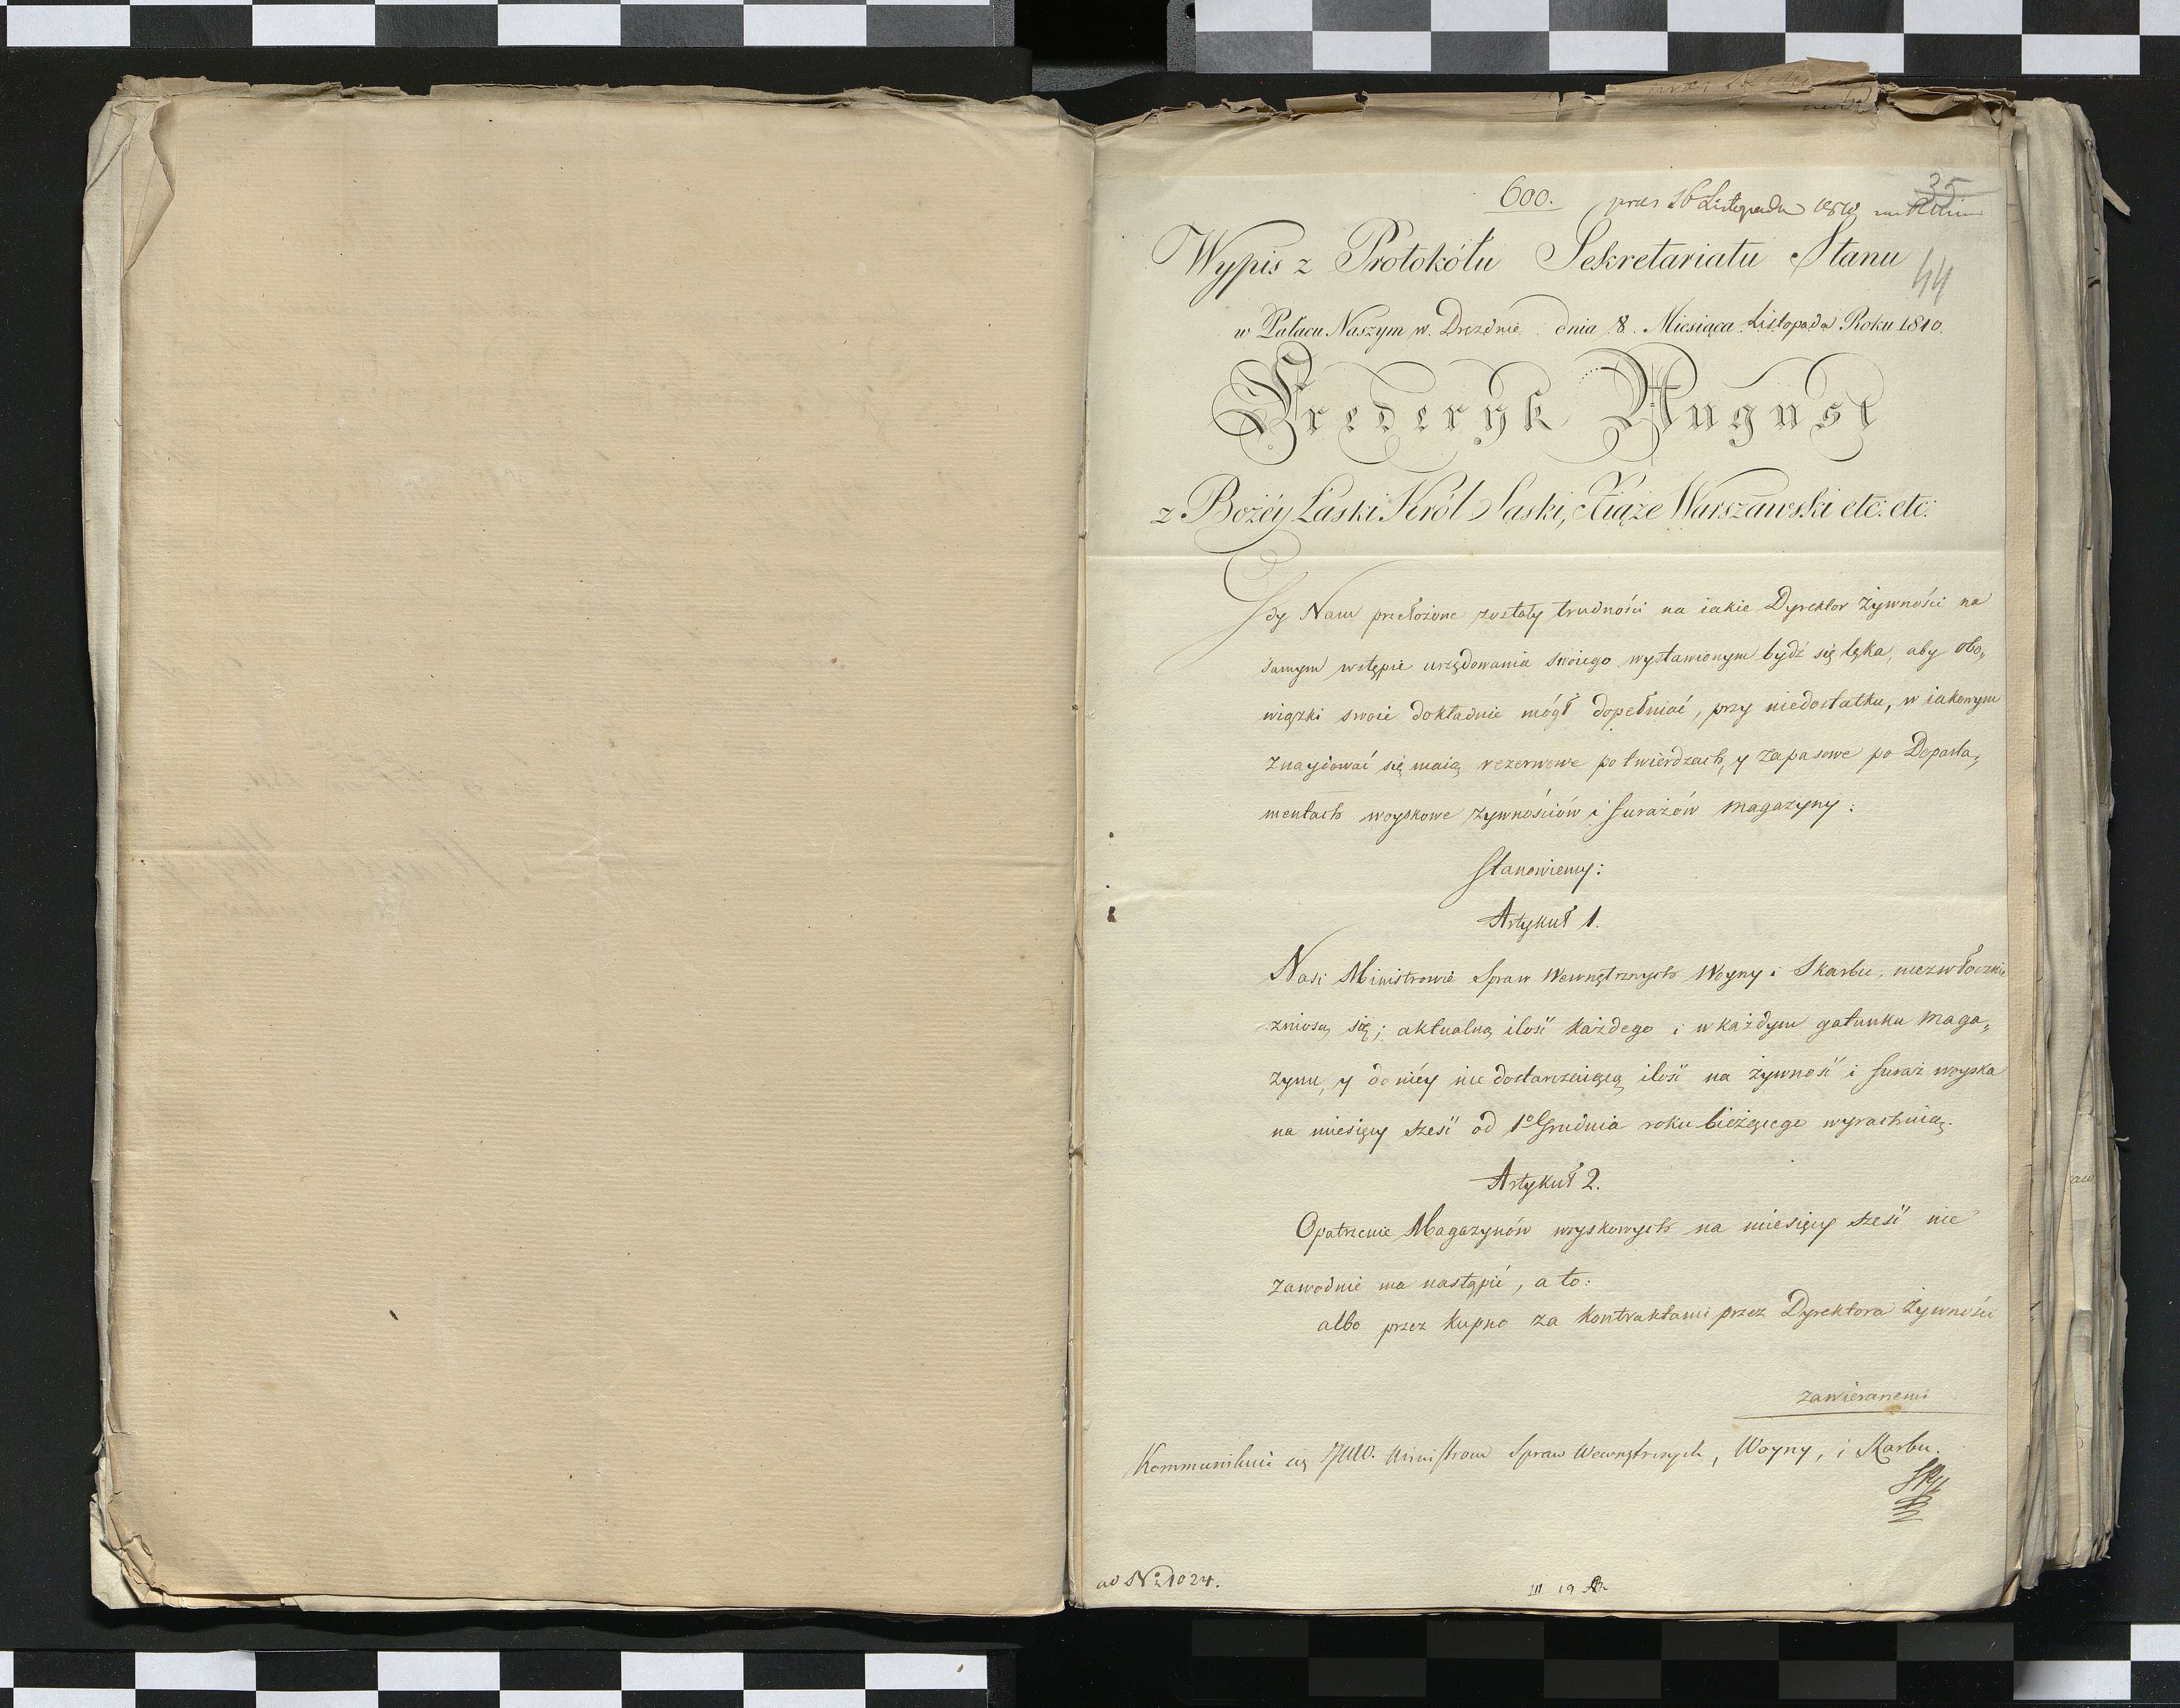 600. 16 Listopada 1810
35
Wypis z Protokółu Sekretariatu Stanu
44
w Pałacu Naszym w Dreznie dnia 8. Miesiąca Listopada Roku 1810.
Frederyk August
z Bożéy Łaski Król Saski, Xiąże Warszawski etc: etc:
Gdy Nam przełożone zostały trudności na iakie Dyrektor Żywności na
samym wstępie urzędowania swoiego wystawionym bydź się lęka, aby obo„
wiązki swoie dokładnie mógł dopełniać, przy niedostatku, w iakowym
znaydować się maią rezerwowe po twierdzach, y zapasowe po Departa„
mentach woyskowe żywnościów i furażów magazyny:
Stanowiemy:
Artykuł 1.
Nasi Ministrowie Spraw Wewnętrznych Woyny i Skarbu, niezwłocznie
zniosą się; aktualną ilość każdego i w każdym gatunku maga„
zynu, y do niéy niedostarczaiącą ilość na żywność i furaż woyska
na miesięcy sześć od 1º Grudnia roku bieżącego wyrachuią.
Artykuł 2.
Opatrzenie Magazynów woyskowych na miesięcy sześć nie
zawodnie ma nastąpić, a to:
albo przez kupno za kontraktami przez Dyrektora Żywności
zawieranemi
Kommunikuie się JWW. Ministrom Spraw Wewnętrznych, Woyny, i Skarbu.
ad Nº 1024.
III 19